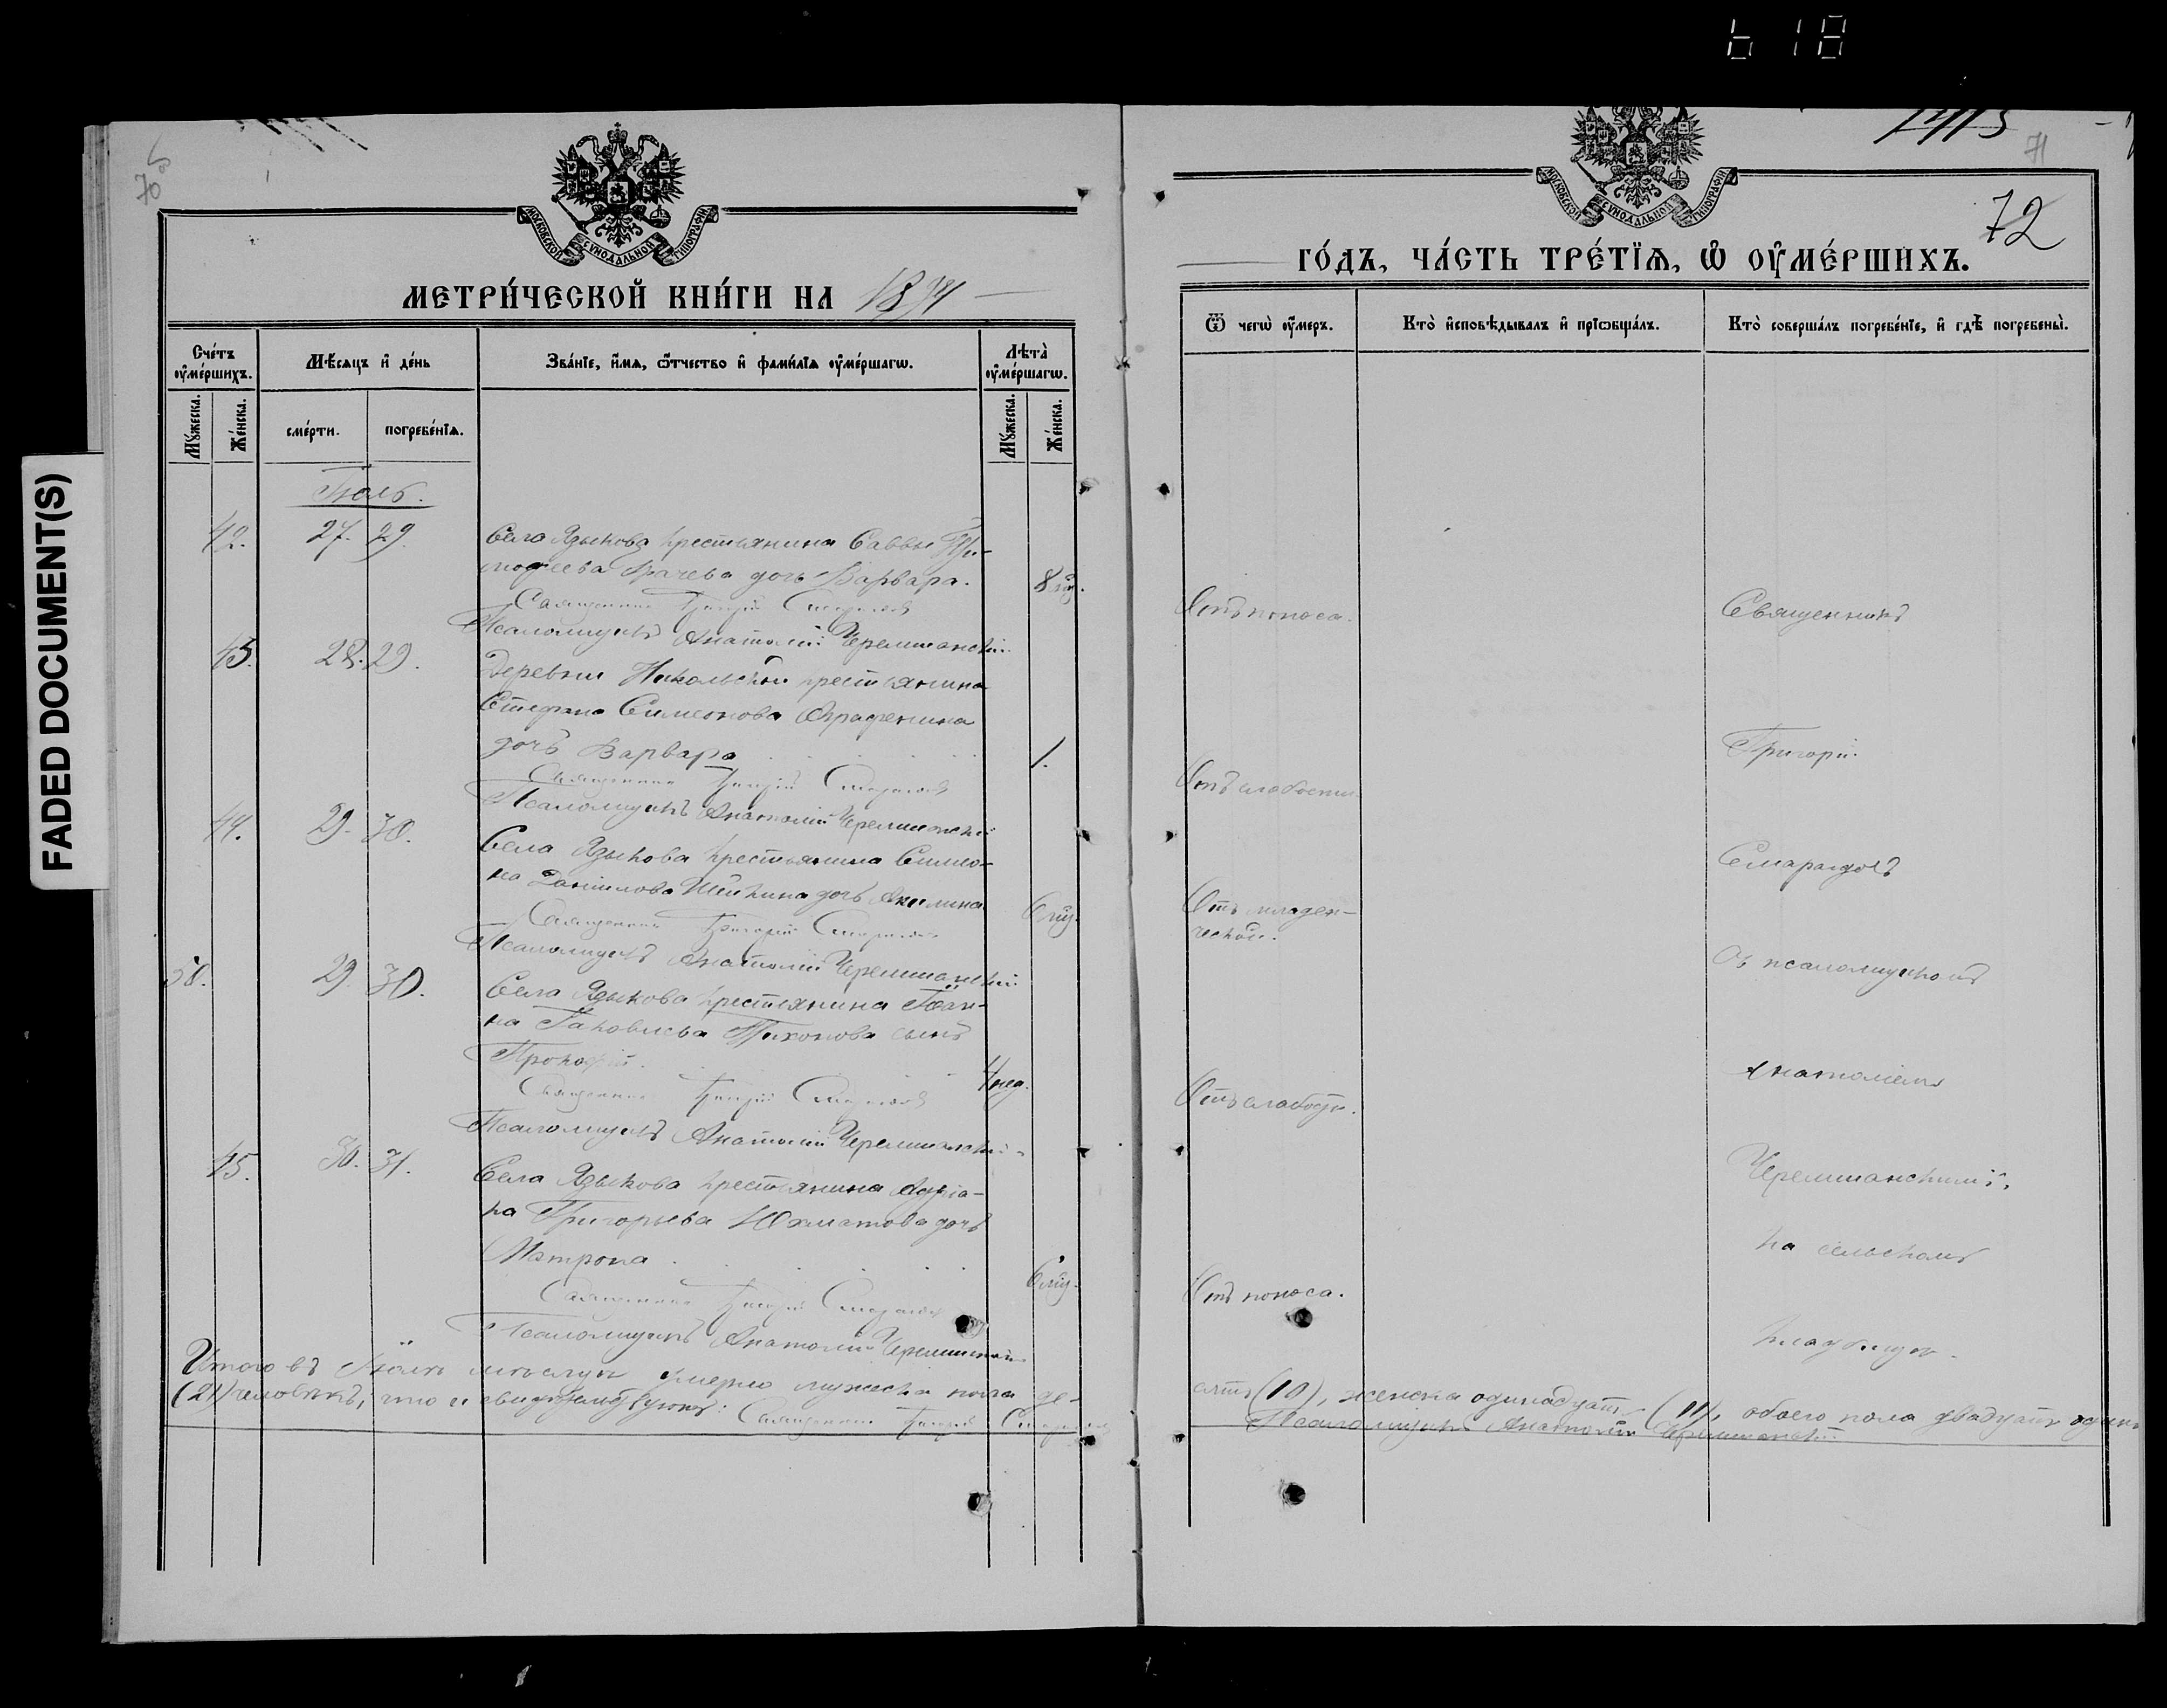 618
FADED DOCUMENT(S)
70
МОСКОВСКОЙ СѴНОДАЛЬНОЙ ТИПОГРАФІИ
МЕТРИ́ЧЕСКОЙ КНИ́ГИ НА 18
Сче́тъ ᲂу҆ме́ршихъ.
Мѣ́сяцъ и҆ де́нь
Зва́нїе, и҆́мѧ, ѻ҆́тчество и҆ фами́лїѧ ᲂу҆ме́ршагѡ.
Лѣта̀ ᲂу҆ме́ршагѡ.
Му́жеска.
Же́нска.
сме́рти.
погребе́нїѧ.
Му́жеска.
Же́нска.
Іюль.
42. 27. 29. Села Языкова крестьянина Саввы Ти-
моѳеева Грачева дочь Варвара. 8 мц.
Священникъ Григорій Смарагдовъ
Псаломщикъ Анатолій Черемшанскій
43. 28. 29. Деревни Никольской крестьянина
Стефана Симеонова
дочь Варвара 1.
Священникъ Григорій Смарагдовъ
Псаломщикъ Анатолій Черемшанскій
44. 29. 30. Села Языкова крестьянина Симео-
на Данилова дочь Акилина 6 мц.
Священникъ Григорій Смарагдовъ
Псаломщикъ Анатолій Черемшанскій
50. 29. 30. Села Языкова крестьянина Іоан-
на Іаковлева Тихонова сынъ
Прокофій. 4 нед.
Священникъ Григорій Смарагдовъ
Псаломщикъ Анатолій Черемшанскій
45. 30. 31. Села Языкова крестьянина Адріа-
на Григорьева Юхматова дочь
Матрона 6 мц.
Священникъ Григорій Смарагдовъ
Псаломщикъ Анатолій Черемшанскій
Итого въ Іюлѣ мѣсяцѣ умерло мужеска пола де-
(21) человѣкъ, что и свидѣтельствуютъ: Священникъ Григорій Смарагдовъ
71
72
МОСКОВСКОЙ СѴНОДАЛЬНОЙ ТИПОГРАФІИ
ГО́ДЪ, ЧА́СТЬ ТРЕ́ТЇѦ, Ѡ҆ ОУ҆МЕ́РШИХЪ.
Ѿ чегѡ̀ ᲂу҆́меръ.
Кто̀ и҆сповѣ́дывалъ и҆ прїѡбща́лъ.
Кто̀ соверша́лъ погребе́нїе, и҆ гдѣ̀ погребены̀.
Отъ поноса.
Священникъ
Григорій
Отъ слабости.
Смарагдовъ
Отъ младен-
ческой.
съ псаломщикомъ
Анатоліемъ
Отъ слабости.
Черемшанскимъ,
на сельскомъ
Отъ поноса.
кладбищѣ.
сять (10), женска одинадцать (11), обоего пола двадцать одинъ
Псаломщикъ Анатолій Черемшанскій